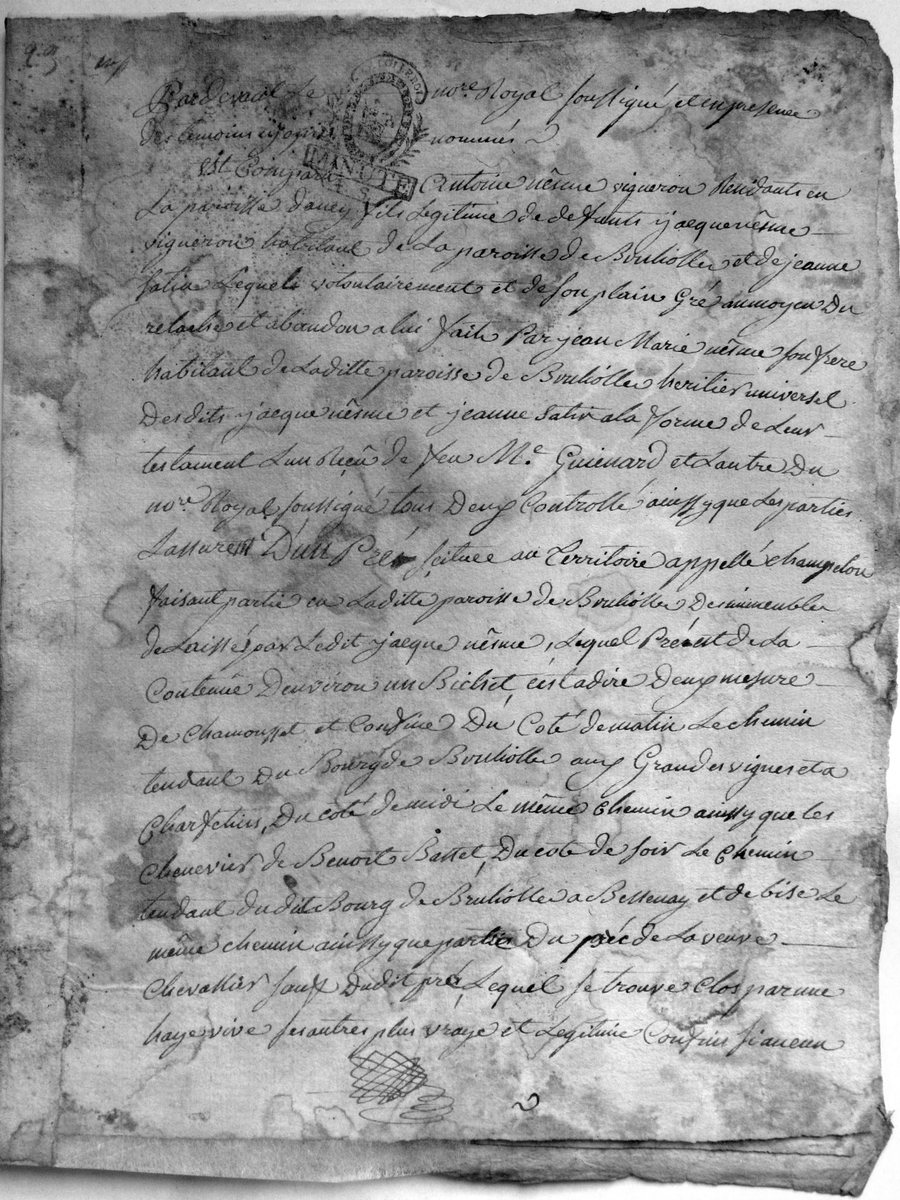 23
Pardevant Le no.re Royal soussigné et en presence
des temoins cy apres nommés
Est Comparu Antoine nême vigneron Residants en
La paroisse dancy fils Legitime de defunts jacque nême
vigneron habitant de La paroisse de Brulliolle et de jeanne
Satin Lequels volontairement et de son plain Gré aumoyen Du
relache et abandon a lui fait Par jean Marie nême son frere
habitant de Laditte paroisse de Brulliolle heritier universel
Des dits jacque nême et jeanne Satin a la forme de Leur
testament Lun Reçu de feu M.e Guienard et Lautre Du
no.re Royal soussigné tous Deux Controllé ainssy que Les parties
Lassurent D'un Pré scituée au Territoire appellé champelou
faisant partie en Laditte paroisse de Brulliolle Des immeubles
de Laissé par Ledit jacque nême, Lequel Pré est de La
Contenue Denviron un Bichet cest a dire Deux mesure
De Chamousset et Confine Du Coté de matin Le chemin
tendant Du Bourg de Brulliolle aux Grandes vignes et a
Charfetin, Du coté de midi Le même chemin ainssy que les
chenevier de Benoit Basset, Du cote de soir Le Chemin
tendant du dit Bourg de Brulliolle a Bessenay et de bise Le
même chemin ainssy que partie Du pré de La veuve
Chevallier sauf Dudit pré, Lequel se trouve Clos par une
haye vive ses autres plus vraye et Legitime Confins si aucun
MINUTE